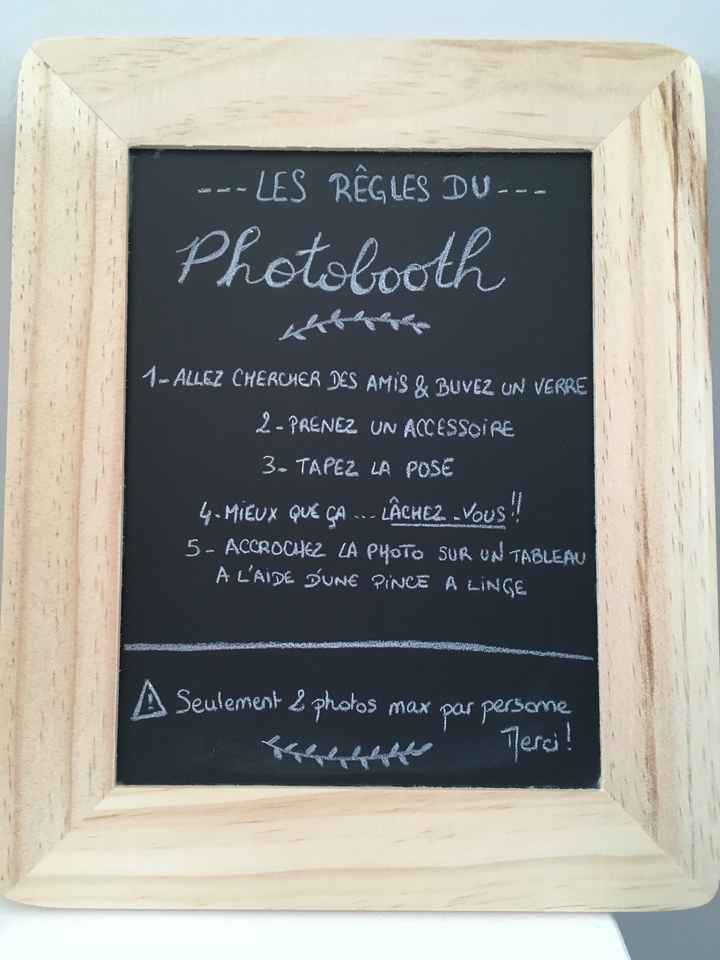 --- LES RÊGLES DU ---
Photobooth
1- ALLEZ CHERCHER DES AMIS & BUVEZ UN VERRE
2- PRENEZ UN ACCESSOIRE
3- TAPEZ LA POSE
4- MIEUX QUE ÇA ... LÂCHEZ-VOUS !!
5- ACCROCHEZ LA PHOTO SUR UN TABLEAU
A L'AIDE D'UNE PINCE A LINGE
⚠ Seulement 2 photos max par personne
Merci !